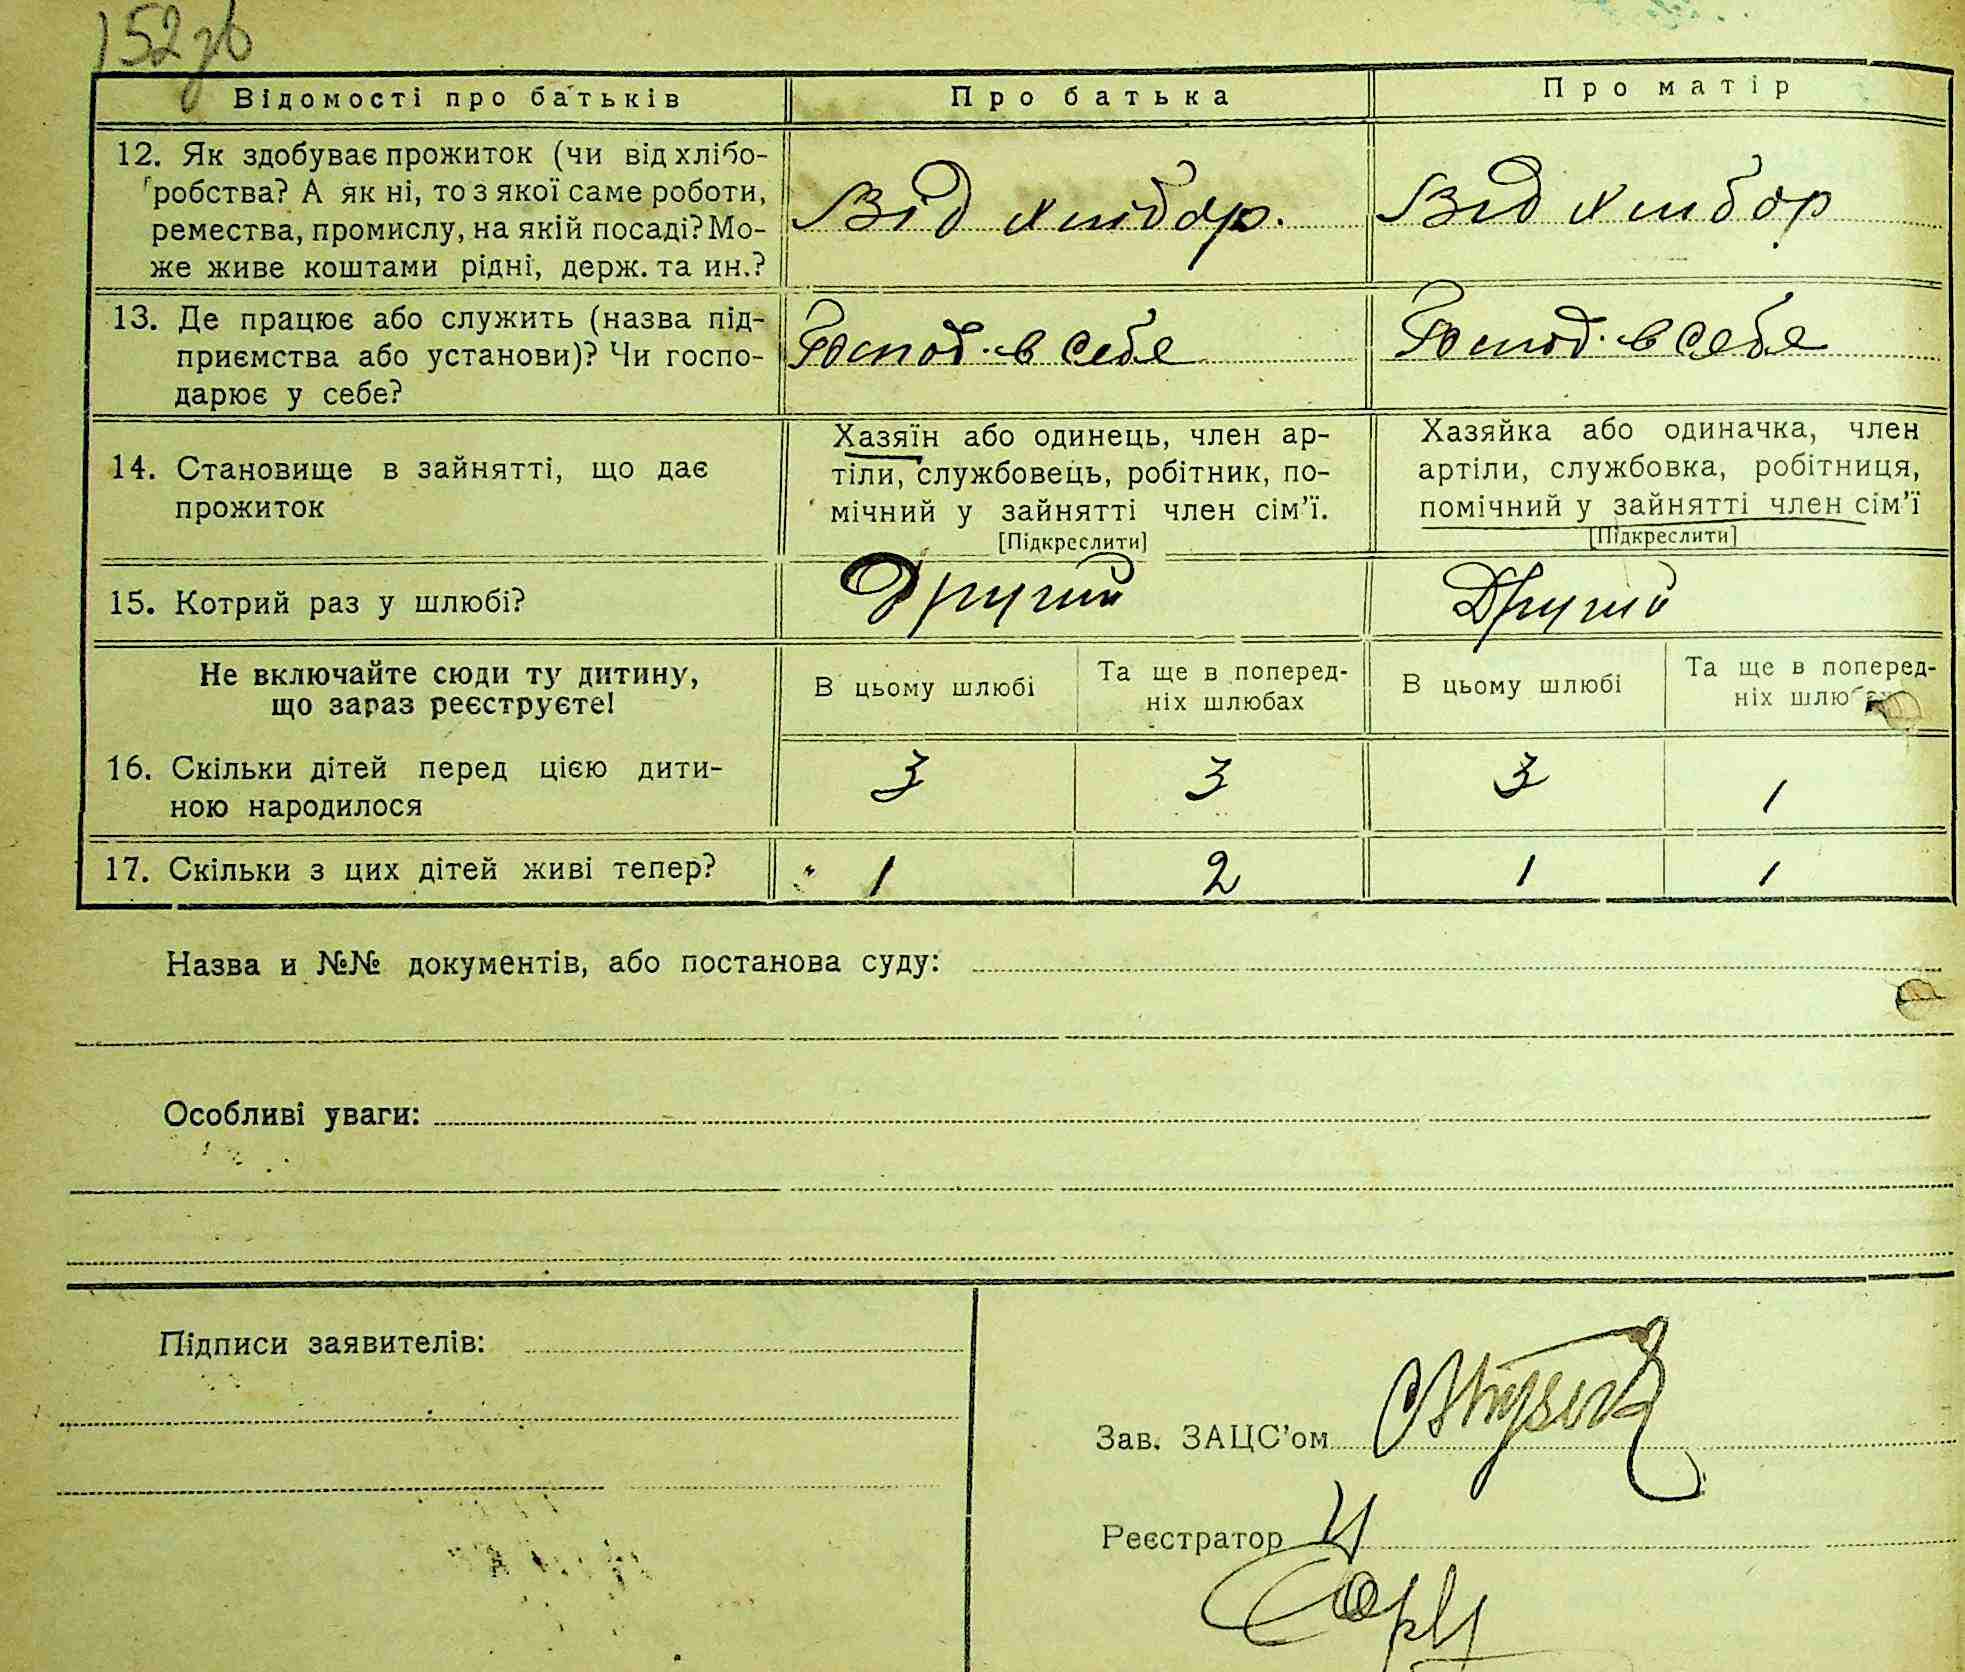 152зв
Відомості про батьків
Про батька
Про матір
12. Як здобуває прожиток (чи від хлібо-
робства? А як ні, то з якої саме роботи,
ремества, промислу, на якій посаді? Мо-
же живе коштами рідні, держ. та ин.?
Від хлібор.
Від хлібор
13. Де працює або служить (назва під-
приємства або установи)? Чи госпо-
дарює у себе?
Господ. в себе
Господ. в себе
14. Становище в зайнятті, що дає
прожиток
Хазяїн або одинець, член ар-
тіли, службовець, робітник, по-
мічний у зайнятті член сім'ї.
[Підкреслити]
Хазяйка або одиначка, член
артіли, службовка, робітниця,
помічний у зайнятті член сім'ї
[Підкреслити]
15. Котрий раз у шлюбі?
Другий
Другий
Не включайте сюди ту дитину,
що зараз реєструєте!
В цьому шлюбі
Та ще в поперед-
ніх шлюбах
В цьому шлюбі
Та ще в поперед-
ніх шлюбах
16. Скільки дітей перед цією дити-
ною народилося
3
3
3
1
17. Скільки з цих дітей живі тепер?
1
2
1
1
Назва и №№ документів, або постанова суду:
Особливі уваги:
Підписи заявителів:
Зав. ЗАЦС'ом
Реєстратор